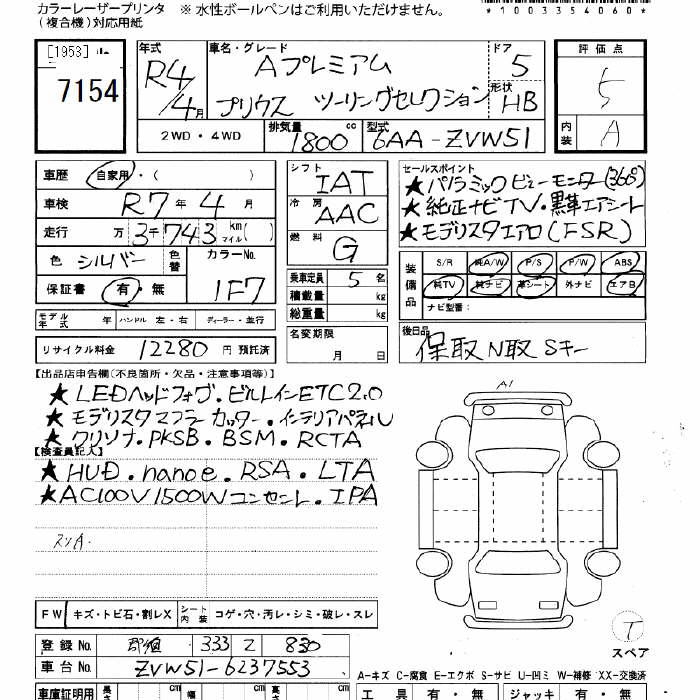 カラーレーザープリンタ ※ 水性ボールペンはご利用いただけません。
(複合機)対応用紙
*1003354060*
[1953]
7154
年式 R4/4月
車名・グレード Aプレミアム
プリウス ツーリングセレクション
ドア 5
形状 HB
評価点 5
内装 A
2WD・4WD 排気量 1800 cc 型式 6AA-ZVW51
車歴 自家用・( )
車検 R7年4月
走行 万 3千743 km マイル( )
色 シルバー 色替 カラーNo. 1F7
保証書 有・無
シフト IAT
冷房 AAC
燃料 G
乗車定員 5 名
積載量 kg
総重量 kg
セールスポイント
★パノラミックビューモニター(360°)
★純正ナビTV・黒革エアシート
★モデリスタエアロ(FSR)
装備品 S/R 純A/W P/S P/W ABS
純TV 純ナビ 革シート 外ナビ エアB
ナビ型番:
モデル年式 年 ハンドル 左・右 ディーラー・並行
名変期限 月 日
後日品 保取N取Sキー
リサイクル料金 12280 円 預託済
【出品店申告欄(不良箇所・欠品・注意事項等)】
★LEDヘッドフォグ・ビルトインETC2.0
★モデリスタマフラーカッター・インテリアパネル
★クリソナ・PKSB・BSM・RCTA
【検査員記入】
★HUD・nanoe・RSA・LTA
★AC100V1500Wコンセント・IPA
A1
FW キズ・トビ石・割レX シート内装 コゲ・穴・汚レ・シミ・破レ・スレ
登録No. 333 830
車台No. ZVW51-6237553
T
スペア
A-キズ C-腐食 E-エクボ S-サビ U-凹ミ W-補修 XX-交換済
車庫証明用 長さ cm 幅 cm 高さ cm 工具 有・無 ジャッキ 有・無